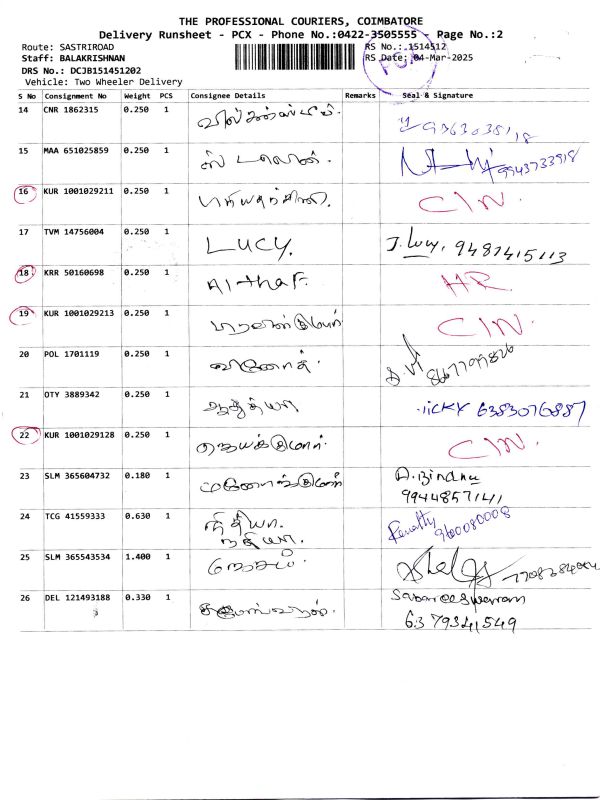 THE PROFESSIONAL COURIERS, COIMBATORE
Delivery Runsheet - PCX - Phone No.:0422-3505555 - Page No.:2
Route: SASTRIROAD RS No.:1514512
Staff: BALAKRISHNAN RS Date: 04-Mar-2025
DRS No.: DCJB151451202
Vehicle: Two Wheeler Delivery
S No Consignment No Weight PCS Consignee Details Remarks Seal & Signature
14 CNR 1862315 0.250 1
15 MAA 651025859 0.250 1 9943733918
16 KUR 1001029211 0.250 1 CIN.
17 TVM 14756004 0.250 1 LUCY. J. Lucy, 9487415113
18 KRR 50160698 0.250 1 Althaf. HR
19 KUR 1001029213 0.250 1 CIN.
20 POL 1701119 0.250 1 வினோத்.
21 OTY 3889342 0.250 1 ஆதித்யா 6383076887
22 KUR 1001029128 0.250 1 ஜெயக்குமார். CIN.
23 SLM 365604732 0.180 1 மனோஜ்குமார் A.Bindhu
9944857141
24 TCG 41559333 0.630 1 நித்யா. 9600080008
25 SLM 365543534 1.400 1
26 DEL 121493188 0.330 1 Sabareeswaran
6379341549